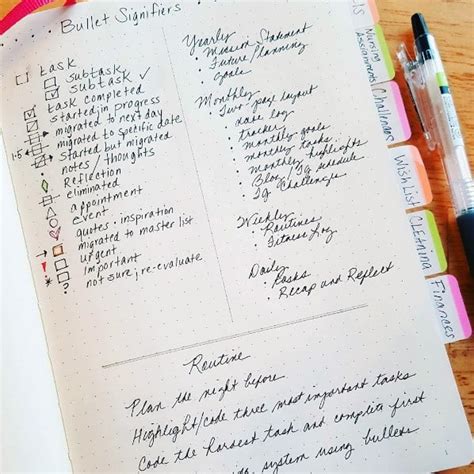 Bullet Signifiers
task
subtask
subtask ✓
task completed
started in progress
migrated to next day
migrated to specific date
started but migrated
notes / thoughts
Reflection
eliminated
appointment
event
quotes · inspiration
migrated to master list
urgent
important
not sure, re-evaluate
1·54
!
*
?
Yearly
• Mission Statement
• Future / planning
• goals
Monthly
• Two-page layout
• task log
• tracker
• monthly goals
• monthly tasks
• monthly highlights
• Blog / Ig schedule
• Ig Challenges
Weekly
• Routines
• Fitness Log
Daily
• tasks
• Recap and Reflect
Routine
Plan the night before
Highlight/code three most important tasks
Code the hardest task and complete first
system using bullets
Nursing
Assignments
Challenges
Wish List
CLEANING
Finances